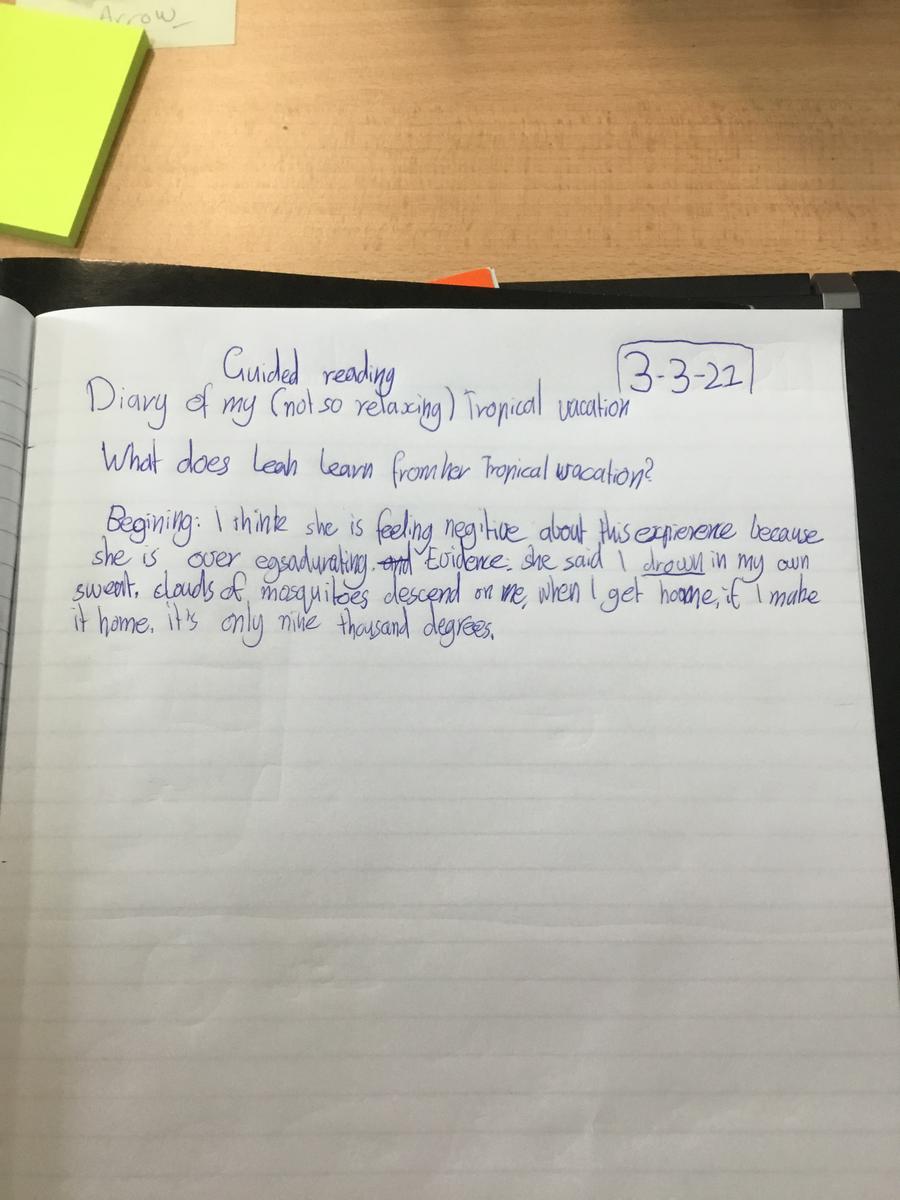 Arrow
Guided reading
3-3-22
Diary of my (not so relaxing) Tropical vacation
What does Leah learn from her Tropical vacation?
Begining: I think she is feeling negitive about this expierence because
she is over egsadurating. and Evidence: she said I drown in my own
sweat. clouds of mosquitoes descend on me, when I get home, if I make
it home. it's only nine thousand degrees.